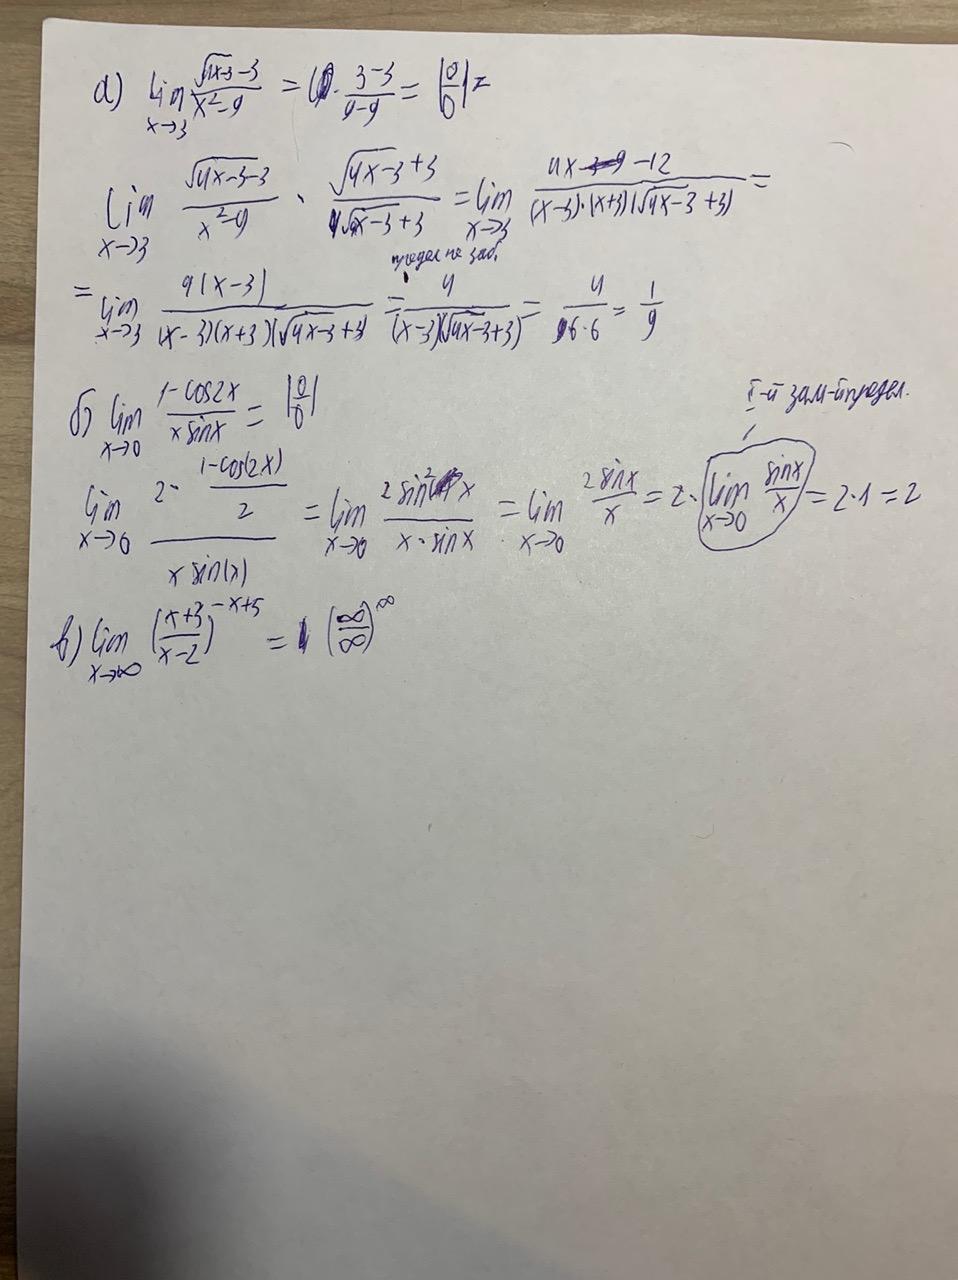 а) lim x→3 (√4x-3 -3)/(x²-9) = (3-3)/(9-9) = |0/0| =
lim x→3 (√4x-3-3)/(x²-9) · (√4x-3+3)/(√4x-3+3) = lim x→3 (4x-12)/((x-3)·(x+3)(√4x-3+3)) =
предел не заб.
= lim x→3 4(x-3)/((x-3)(x+3)(√4x-3+3)) = 4/((x-3)(√4x-3+3)) = 4/(6·6) = 1/9
I-й зам-й предел.
б) lim x→0 (1-cos2x)/(x sinx) = |0/0|
lim x→0 (2·(1-cos(2x))/2)/(x sin(x)) = lim x→0 (2sin²x)/(x·sinx) = lim x→0 (2sinx)/x = 2·lim x→0 (sinx)/x = 2·1=2
в) lim x→∞ ((x+3)/(x-2))^(-x+5) = (∞/∞)^∞